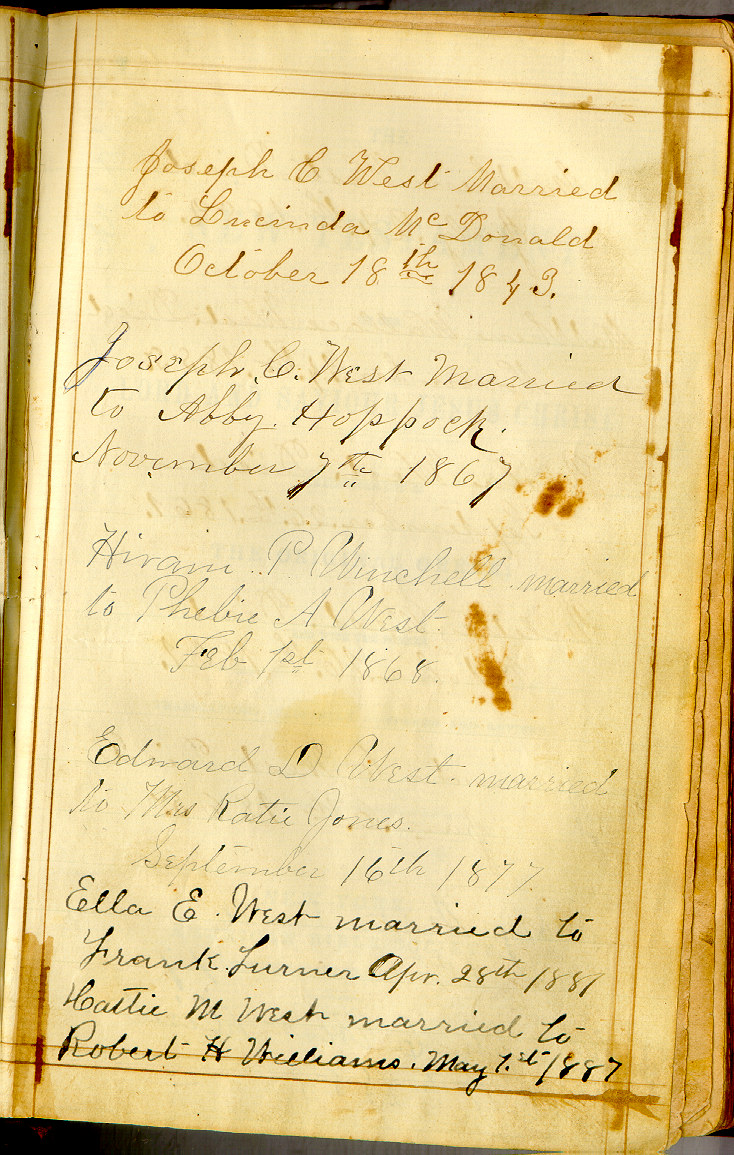 Joseph C West Married
to Lucinda McDonald
October 18th 1843.
Joseph C. West Married
to Abby Hoppock.
November 7th 1867
Hiram P Winchell married
to Phebie A West.
Feb 1st 1868.
Edward D West married
to Mrs Katie Jones.
September 16th 1877.
Ella E. West married to
Frank Turner Apr. 28th 1881
Hattie M West married to
Robert H Williams. May 1st 1887